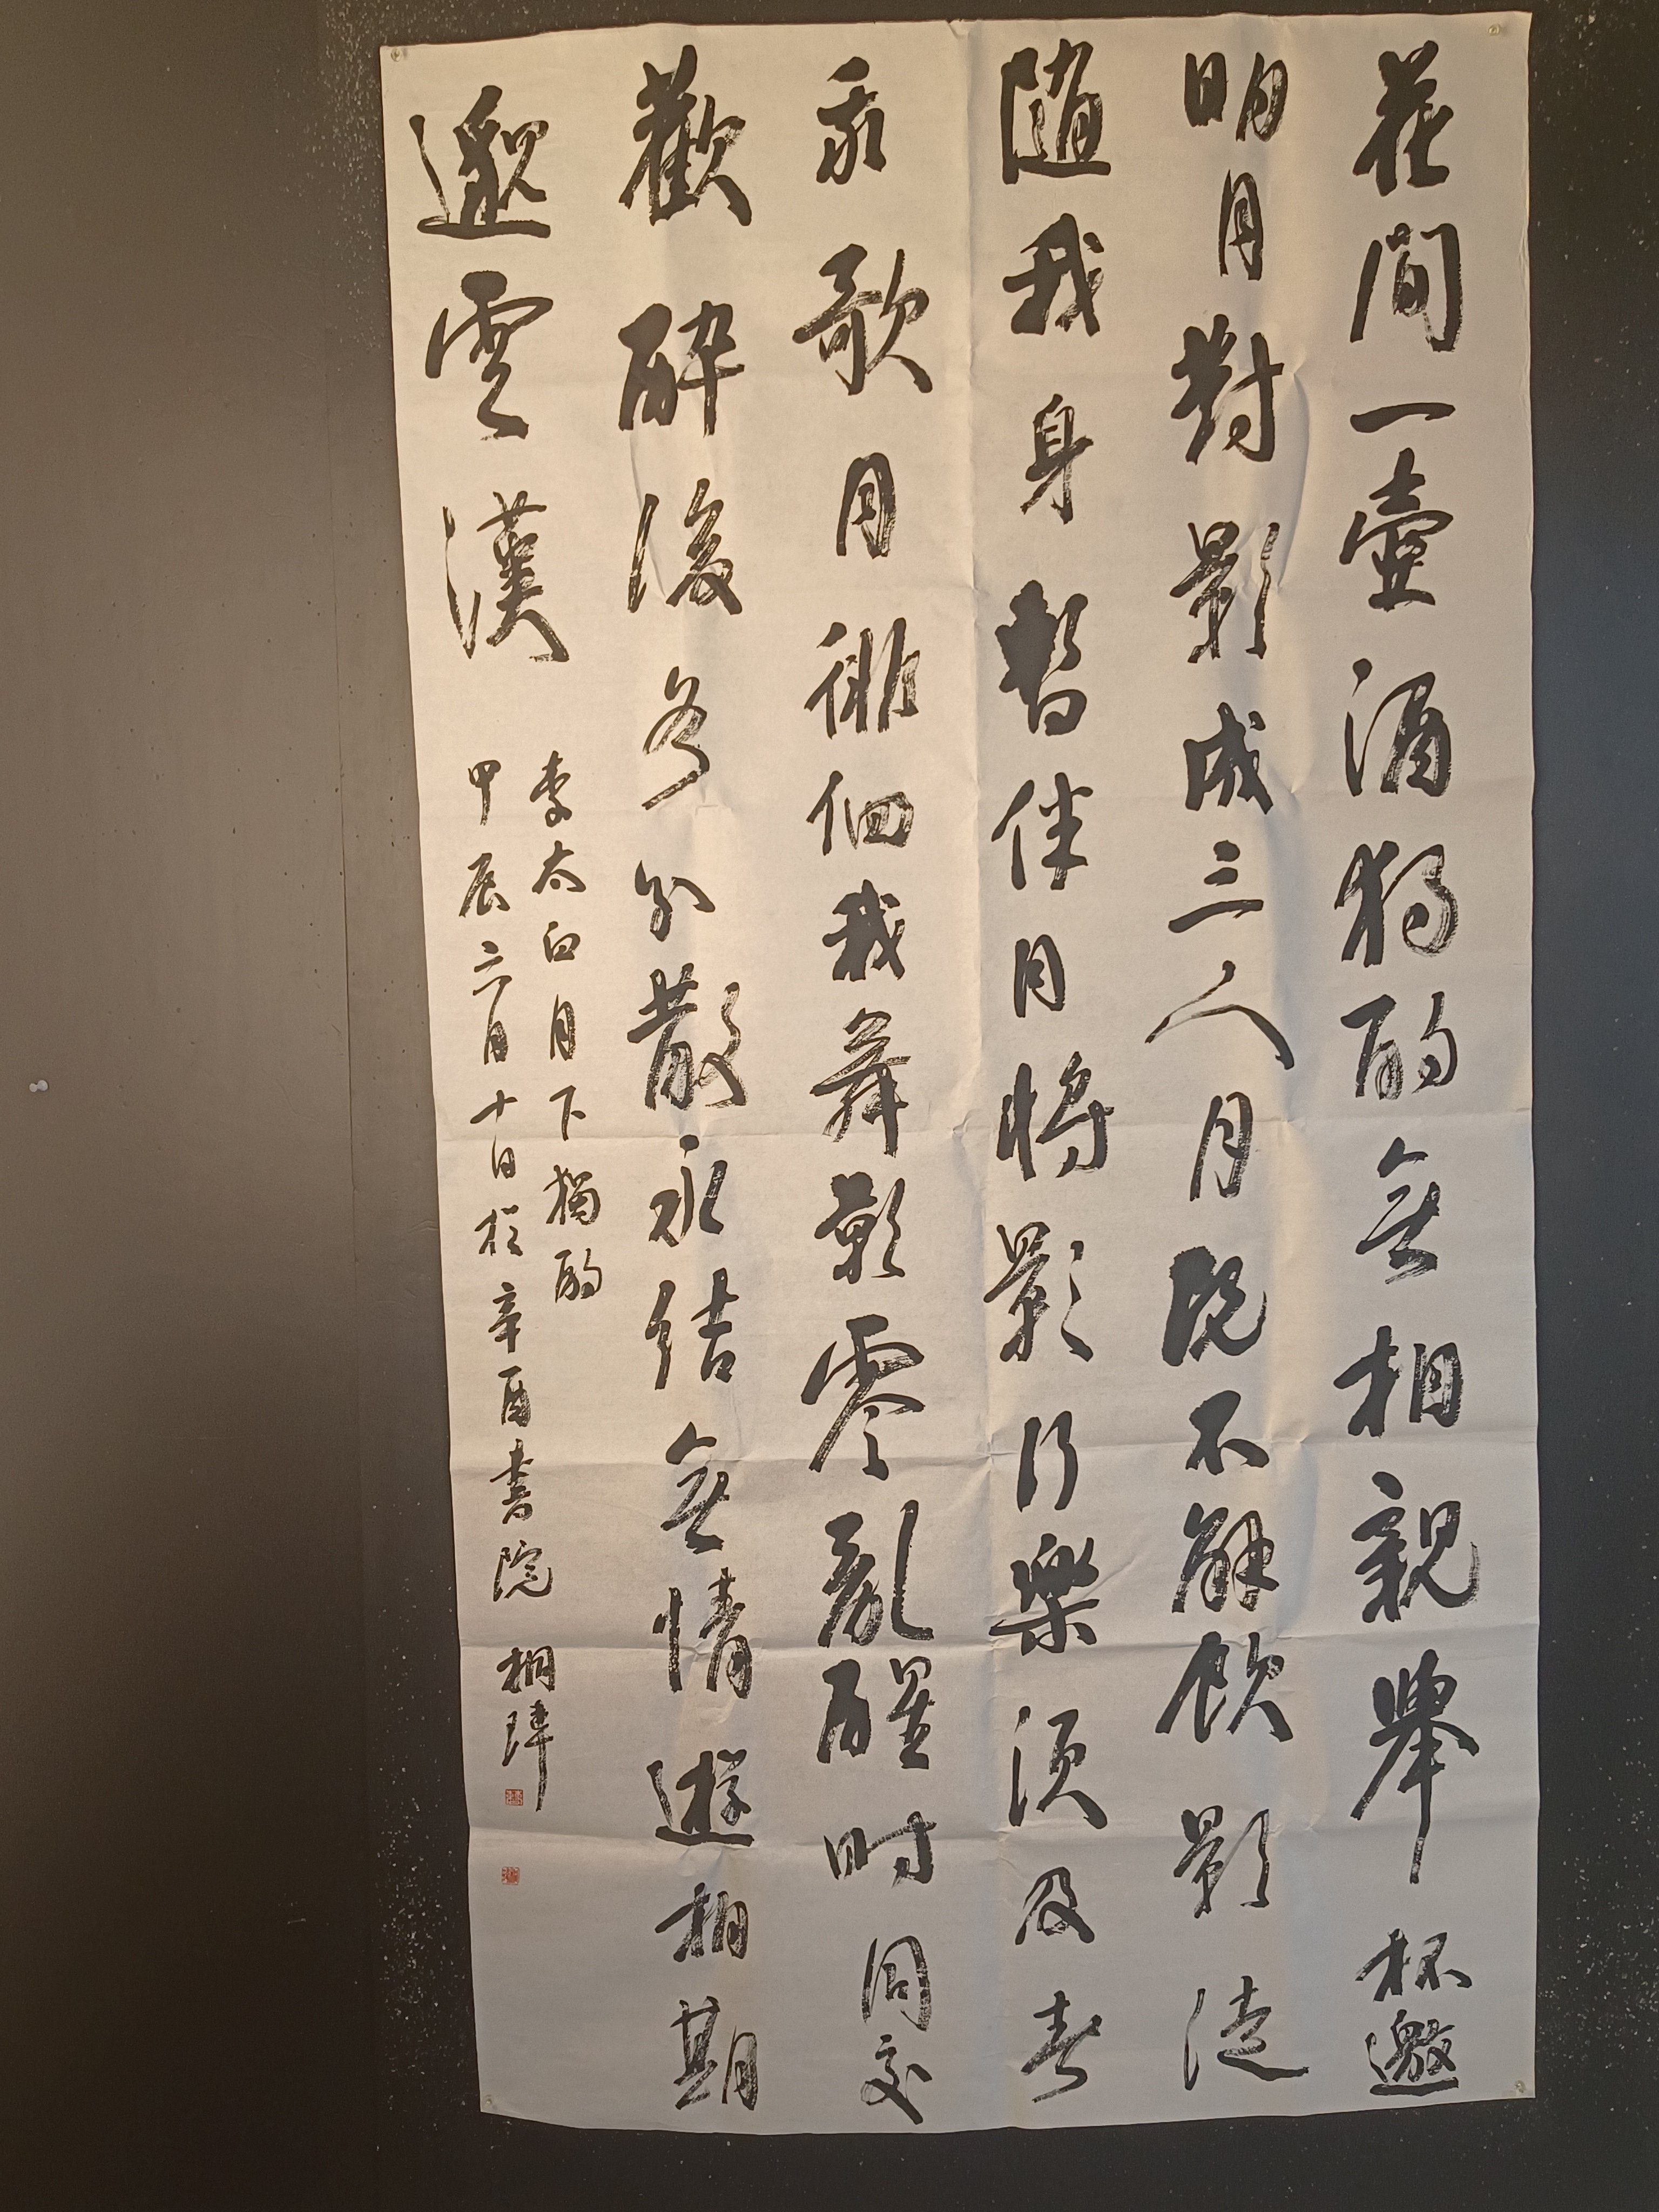 花間一壺酒獨酌無相親舉杯邀
明月對影成三人月既不解飲影徒
隨我身暫伴月將影行樂須及春
我歌月徘徊我舞影零亂醒時同交
歡醉後各分散永結無情遊相期
邈雲漢
李太白月下獨酌
甲辰六月十日於辛酉書院